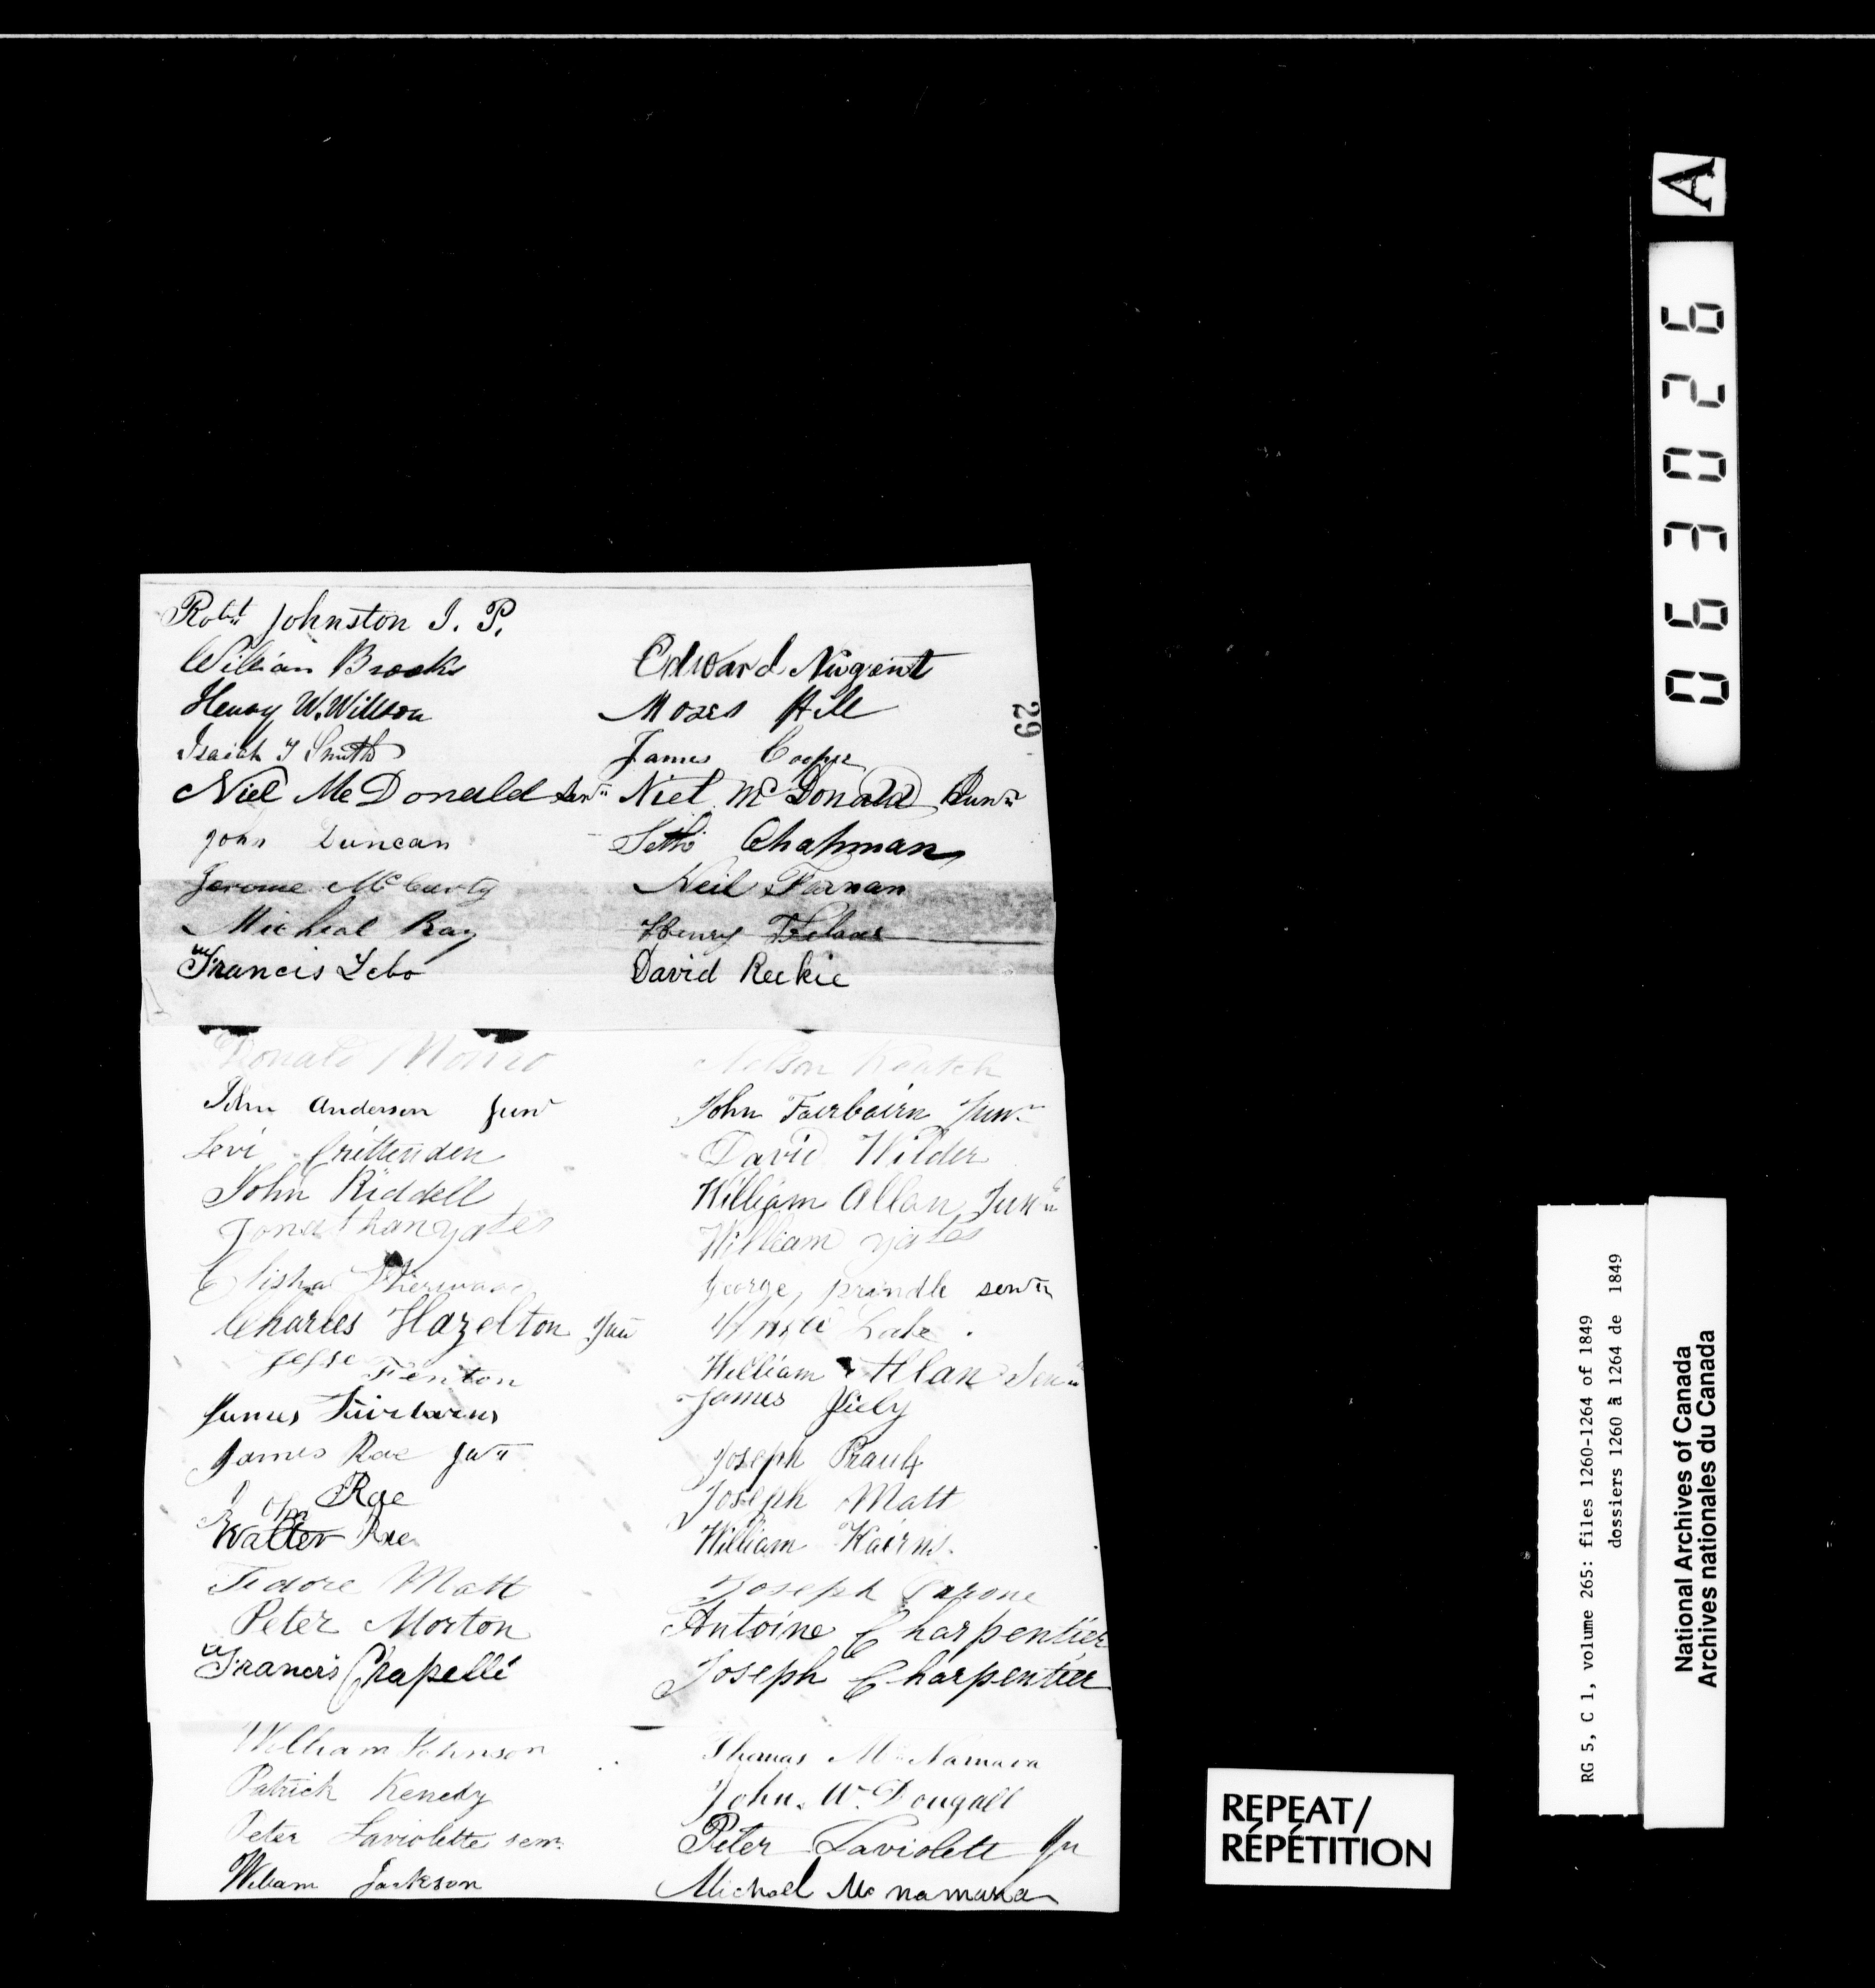 Robt Johnston J. P.
William Brooks
Edward Nugent
Henry W. Willson
Moses Hill
Isaiah Y Smith
James Cooper
Niel McDonald Senr
Niel McDonald Junr
John Duncan
Seth Chapman
Jerome McCarty
Neil Farnan
Micheal Ray
Henry
Francis Lebo
David Reekie
Donald Monro
Nelson Roatch
John Anderson Junr
John Fairbairn Junr
Levi Crittenden
David Wilder
John Riddell
William Allan Junr
Jonathan yates
William yates
Elisha Sherwood
George prindle senr
Charles Hazelton Jun
Lake .
Jesse Fenton
William Allan Senr
James Fairbairns
James
James Rae Junr
Joseph
John Rae
Joseph Matt
Walter Rae
William Kairns.
Tedore Matt
Joseph
Peter Morton
Antoine Charpentier
Francis Chapelle
Joseph Charpentier
William Johnson
Thomas McNamara
Patrick Kenedy
John McDougall
Peter Laviolette senr
Peter Laviolett Jn
William Jackson
Michael Mc namara
29
A
063026
RG 5, C 1, volume 265: files 1260-1264 of 1849
dossiers 1260 à 1264 de 1849
National Archives of Canada
Archives nationales du Canada
REPEAT/
RÉPÉTITION